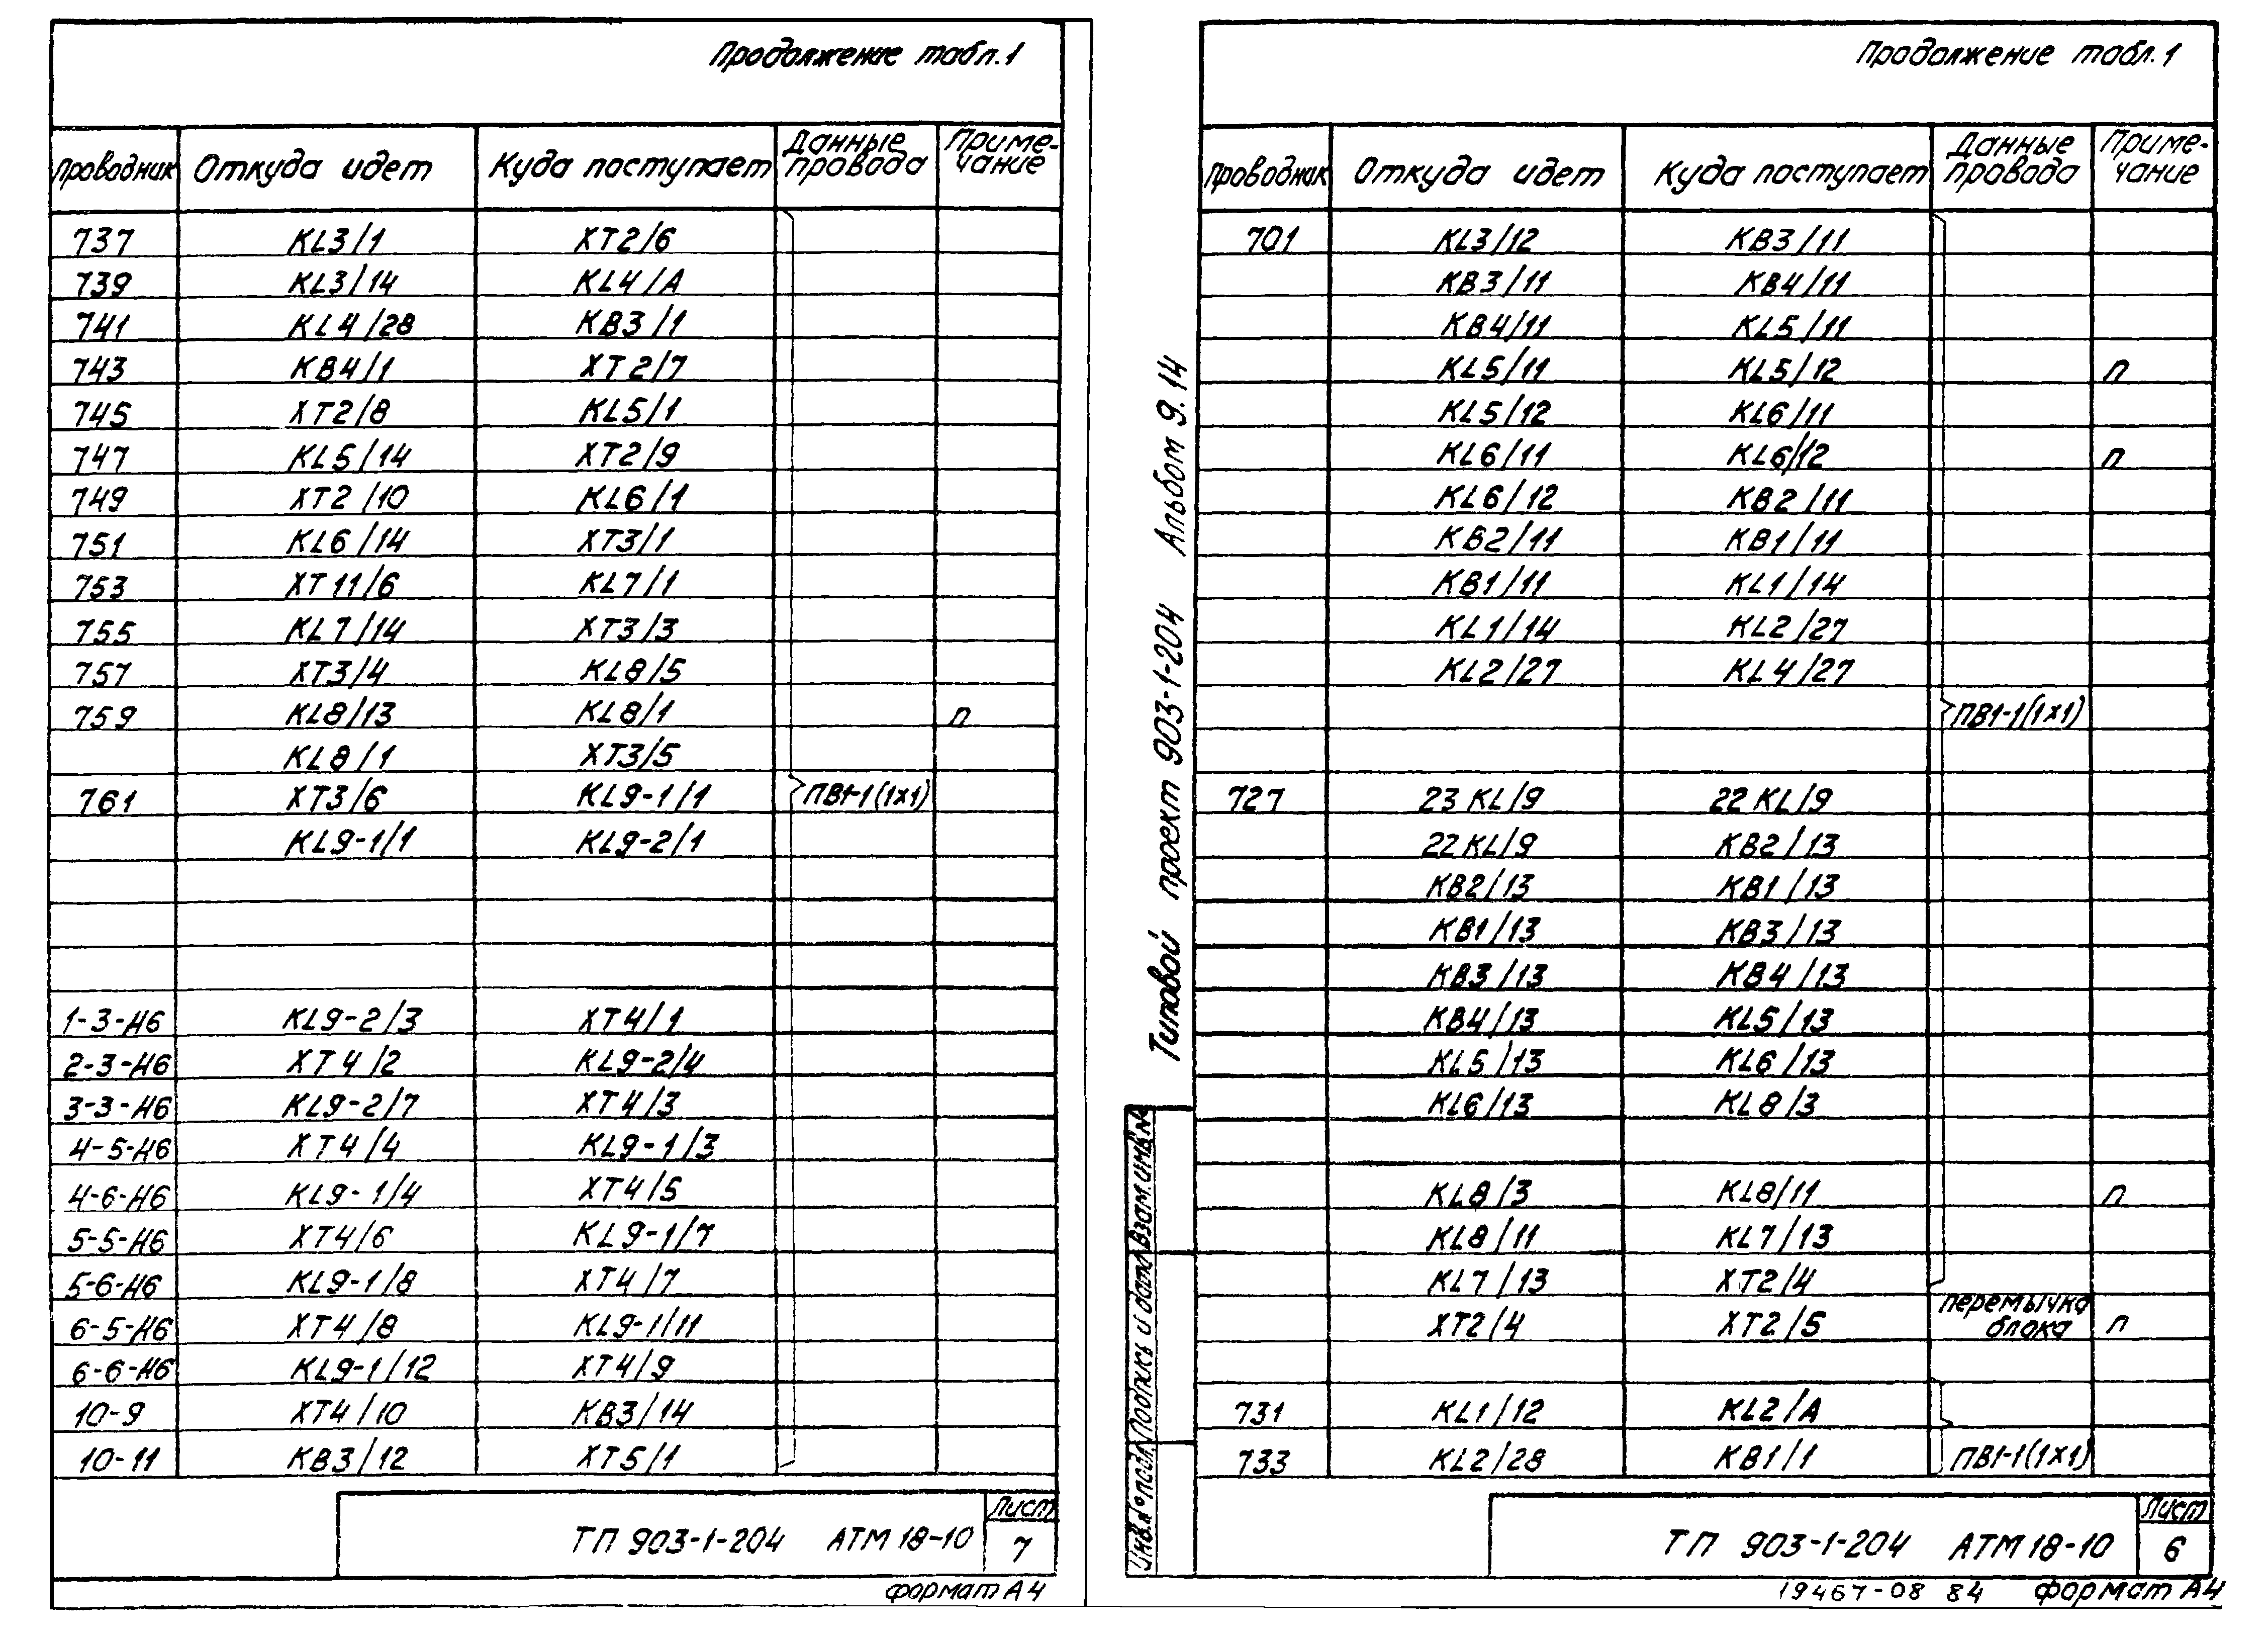 Продолжение табл.1
Проводник Откуда идет Куда поступает Данные провода Примечание
737 KL3/1 XT2/6
739 KL3/14 KL4/A
741 KL4/28 KB3/1
743 KB4/1 XT2/7
745 XT2/8 KL5/1
747 KL5/14 XT2/9
749 XT2/10 KL6/1
751 KL6/14 XT3/1
753 XT11/6 KL7/1
755 KL7/14 XT3/3
757 XT3/4 KL8/5
759 KL8/13 KL8/1 п
KL8/1 XT3/5
761 XT3/6 KL9-1/1 ПВ1-1(1х1)
KL9-1/1 KL9-2/1
1-3-Н6 KL9-2/3 XT4/1
2-3-Н6 XT4/2 KL9-2/4
3-3-Н6 KL9-2/7 XT4/3
4-5-Н6 XT4/4 KL9-1/3
4-6-Н6 KL9-1/4 XT4/5
5-5-Н6 XT4/6 KL9-1/7
5-6-Н6 KL9-1/8 XT4/7
6-5-Н6 XT4/8 KL9-1/11
6-6-Н6 KL9-1/12 XT4/9
10-9 XT4/10 KB3/14
10-11 KB3/12 XT5/1
ТП 903-1-204 АТМ 18-10 Лист 7
формат А4
Продолжение табл.1
Проводник Откуда идет Куда поступает Данные провода Примечание
701 KL3/12 KB3/11
KB3/11 KB4/11
KB4/11 KL5/11
KL5/11 KL5/12 п
KL5/12 KL6/11
KL6/11 KL6/12 п
KL6/12 KB2/11
KB2/11 KB1/11
KB1/11 KL1/14
KL1/14 KL2/27
KL2/27 KL4/27
ПВ1-1(1х1)
727 23KL/9 22KL/9
22KL/9 KB2/13
KB2/13 KB1/13
KB1/13 KB3/13
KB3/13 KB4/13
KB4/13 KL5/13
KL5/13 KL6/13
KL6/13 KL8/3
KL8/3 KL8/11 п
KL8/11 KL7/13
KL7/13 XT2/4
XT2/4 XT2/5 перемычка блока п
731 KL1/12 KL2/A
733 KL2/28 KB1/1 ПВ1-1(1х1)
ТП 903-1-204 АТМ 18-10 Лист 6
19467-08 84 формат А4
Типовой проект 903-1-204 Альбом 9.14
Инв.№подл. Подпись и дата Взам.инв.№